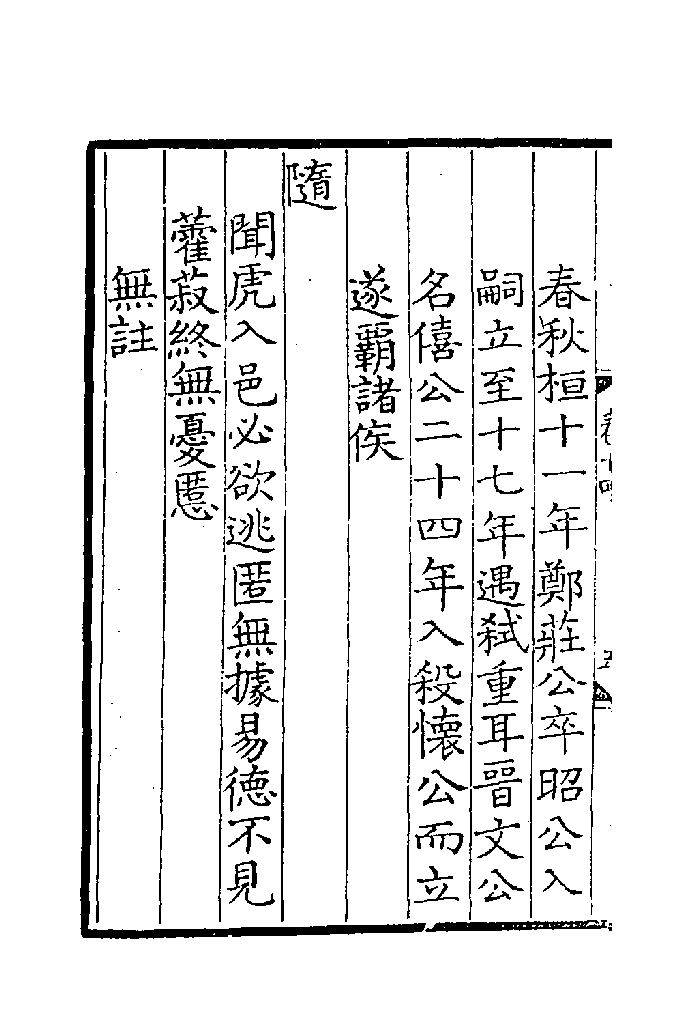 春秋桓十一年鄭莊公卒昭公入
嗣立至十七年遇弑重耳晉文公
名僖公二十四年入殺懷公而立
遂覇諸侯
隨
聞虎入邑必欲逃匿無據昜德不見
藿菽終無憂慝
無註